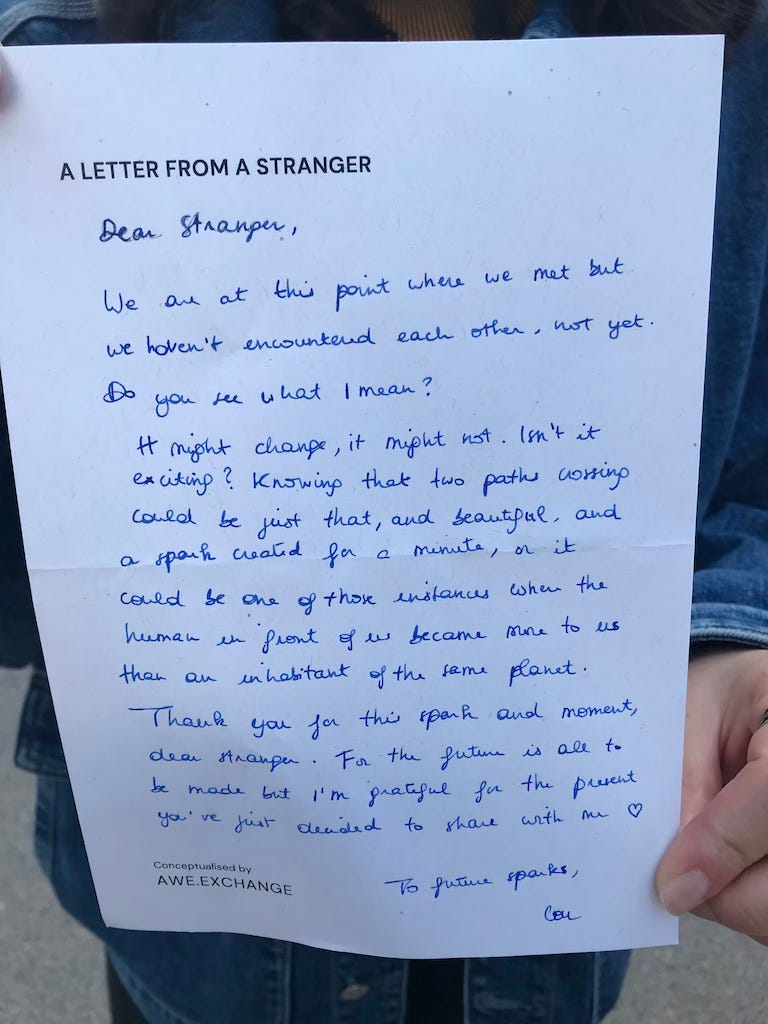 A LETTER FROM A STRANGER
Dear Stranger,
We are at this point where we met but
we haven't encountered each other, not yet.
Do you see what I mean?
It might change, it might not. Isn't it
exciting? Knowing that two paths crossing
could be just that, and beautiful, and
a spark created for a minute, or it
could be one of those instances when the
human in front of us became more to us
than an inhabitant of the same planet.
Thank you for this spark and moment,
dear stranger. For the future is all to
be made but I'm grateful for the present
you've just decided to share with me ♡
Conceptualised by
AWE.EXCHANGE
To future sparks,